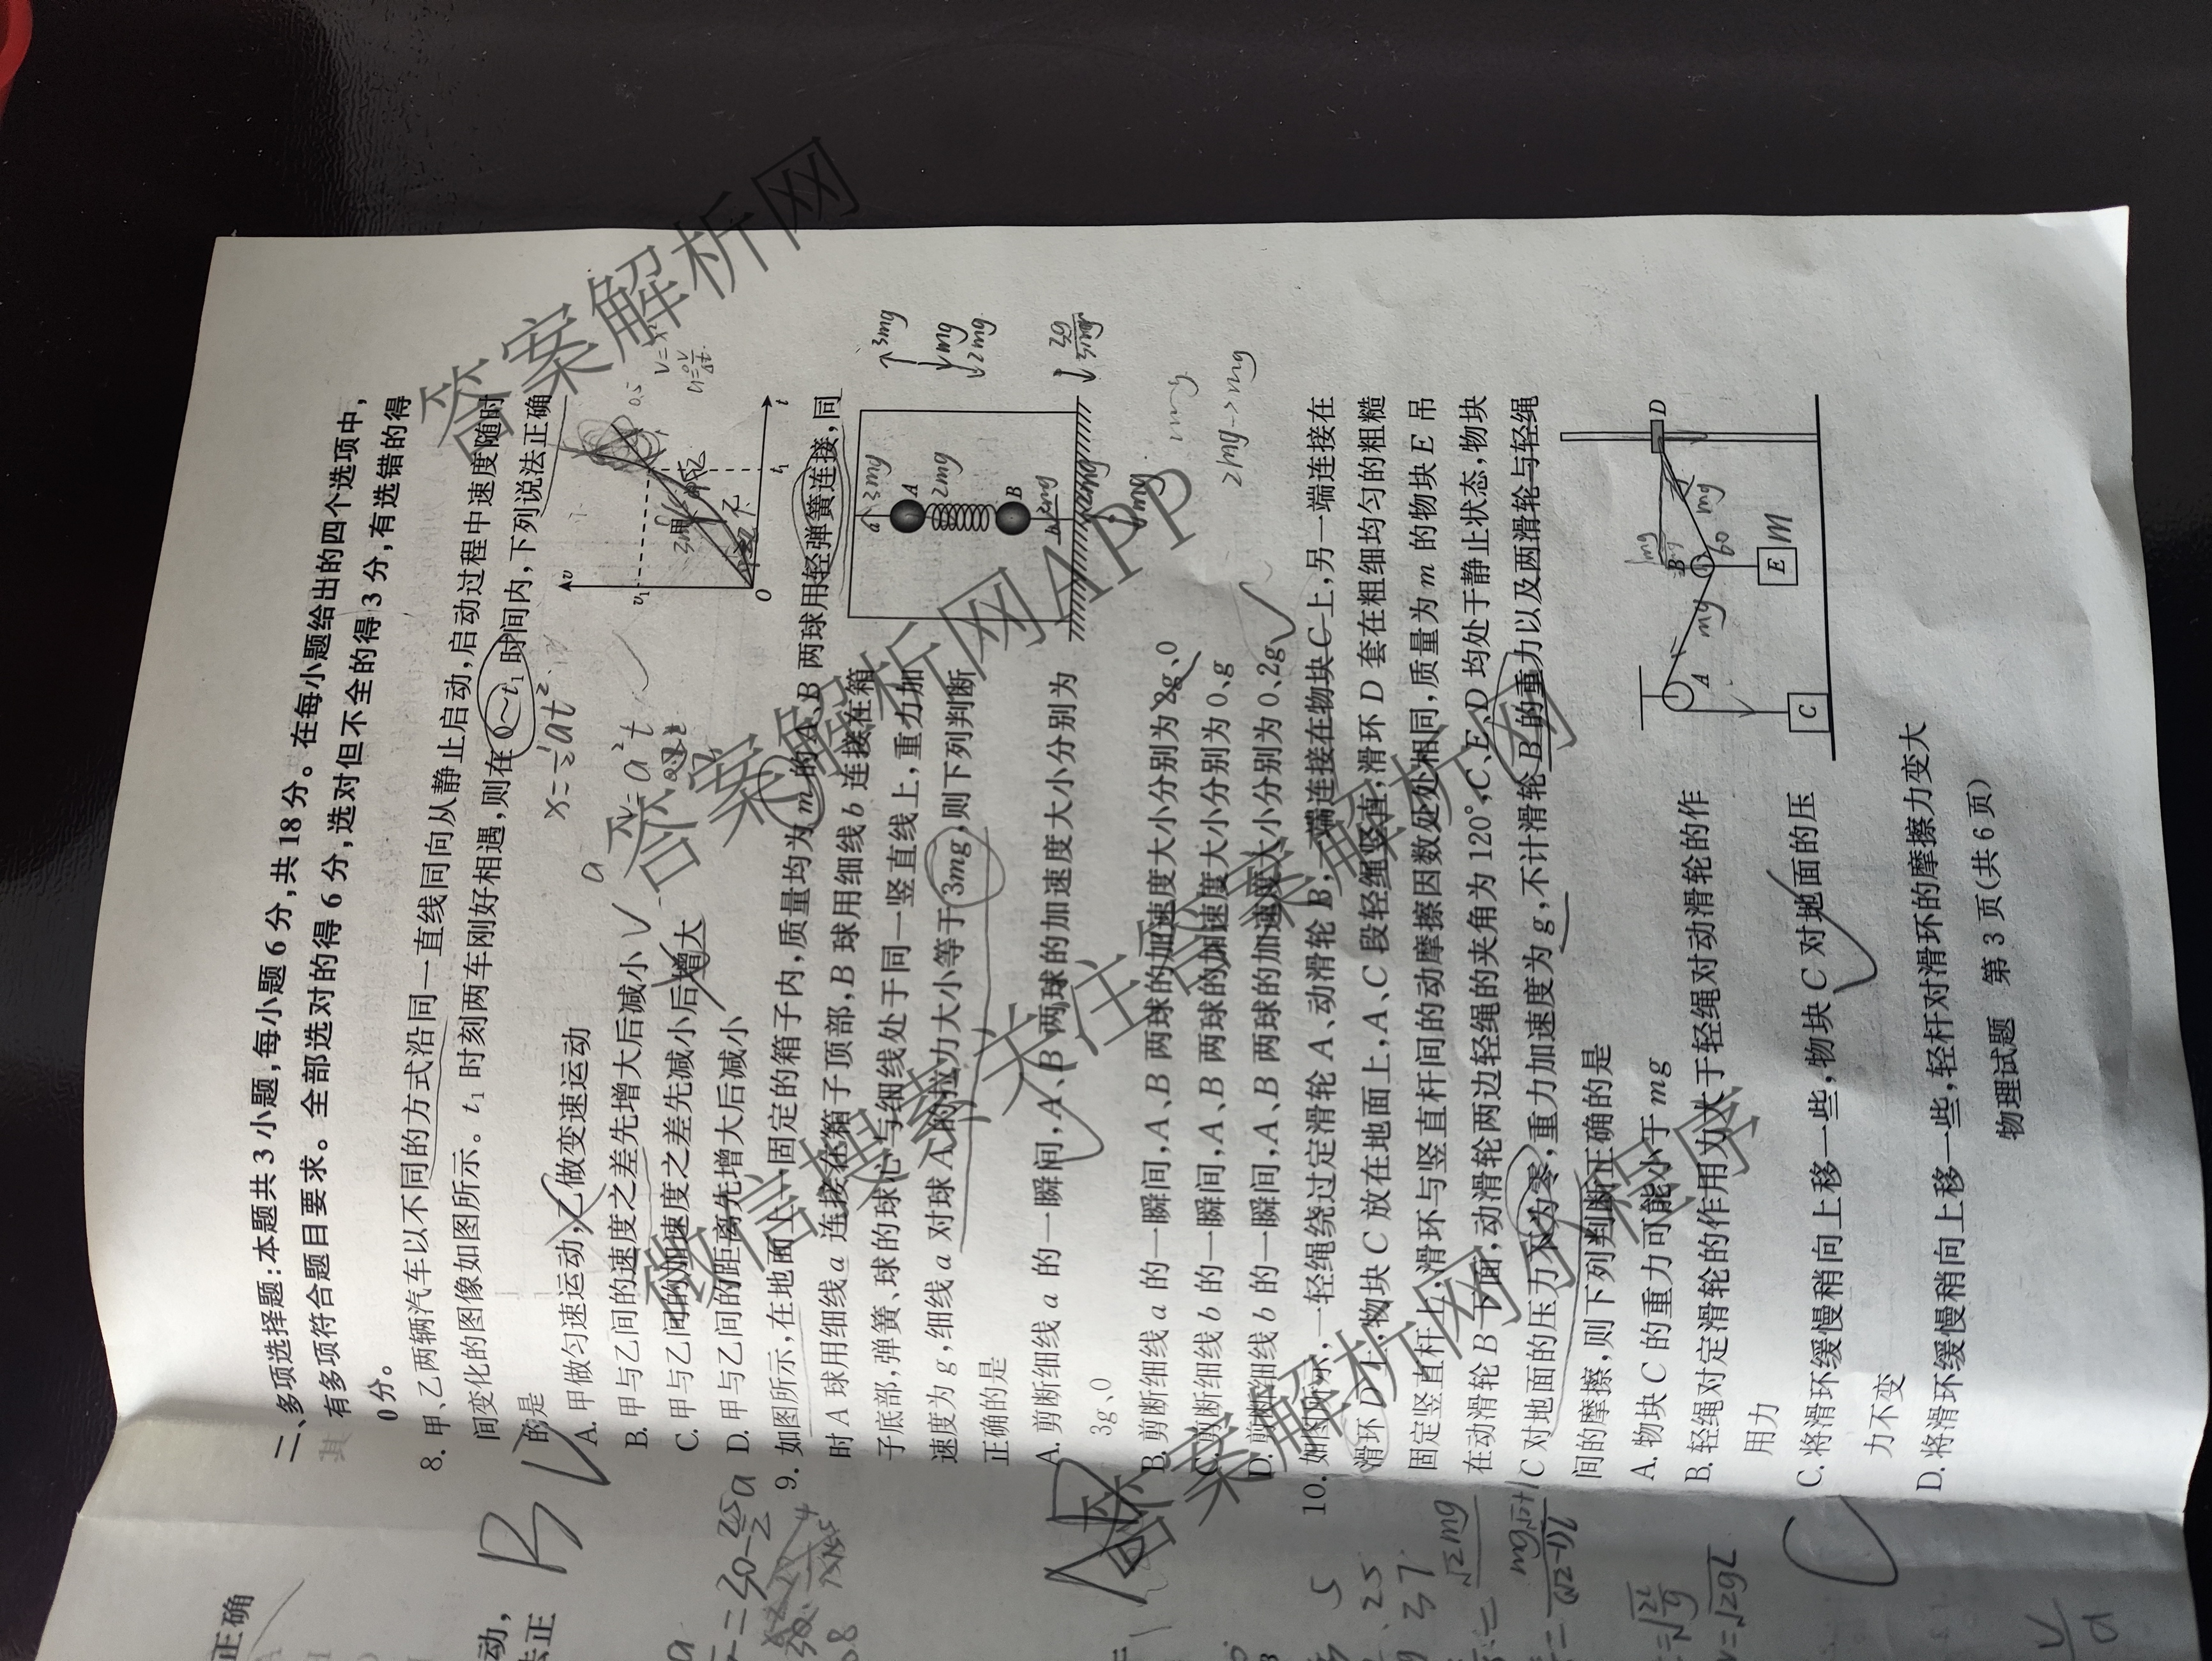 二、多项选择题:本题共3小题,每小题6分,共18分。在每小题给出的四个选项中,
有多项符合题目要求。全部选对的得6分,选对但不全的得3分,有选错的得
0分。
8. 甲、乙两辆汽车以不同的方式沿同一直线同向从静止启动,启动过程中速度随时
间变化的图像如图所示。t₁时刻两车刚好相遇,则在0~t₁时间内,下列说法正确
的是
A. 甲做匀速运动,乙做变速运动
B. 甲与乙间的速度之差先增大后减小
C. 甲与乙间的加速度之差先减小后增大
D. 甲与乙间的距离先增大后减小
v
v₁
甲
乙
O
t₁
t
x=½at²
9. 如图所示,在地面上一固定的箱子内,质量均为m的A、B两球用轻弹簧连接,同
时A球用细线a连接在箱子顶部,B球用细线b连接在箱
子底部,弹簧、球的球心与细线处于同一竖直线上,重力加
速度为g,细线a对球A的拉力大小等于3mg,则下列判断
正确的是
A. 剪断细线a的一瞬间,A、B两球的加速度大小分别为
3g、0
B. 剪断细线a的一瞬间,A、B两球的加速度大小分别为2g、0
C. 剪断细线b的一瞬间,A、B两球的加速度大小分别为0、g
D. 剪断细线b的一瞬间,A、B两球的加速度大小分别为0、2g
a
A
B
b
3mg
2mg
3mg
mg
2mg
2mg→mg
10. 如图所示,一轻绳绕过定滑轮A、动滑轮B,一端连接在物块C上,另一端连接在
滑环D上,物块C放在地面上,A、C段轻绳竖直,滑环D套在粗细均匀的粗糙
固定竖直杆上,滑环与竖直杆间的动摩擦因数处处相同,质量为m的物块E吊
在动滑轮B下面,动滑轮两边轻绳的夹角为120°,C、E、D均处于静止状态,物块
C对地面的压力不为零,重力加速度为g,不计滑轮B的重力以及两滑轮与轻绳
间的摩擦,则下列判断正确的是
A. 物块C的重力可能小于mg
B. 轻绳对定滑轮的作用力大于轻绳对动滑轮的作
用力
C. 将滑环缓慢稍向上移一些,物块C对地面的压
力不变
D. 将滑环缓慢稍向上移一些,轻杆对滑环的摩擦力变大
A
B
C
D
E
m
mg
60
mg
物理试题 第3页(共6页)
正确
动,
法正
B
C
答案解析网
答案解析网APP